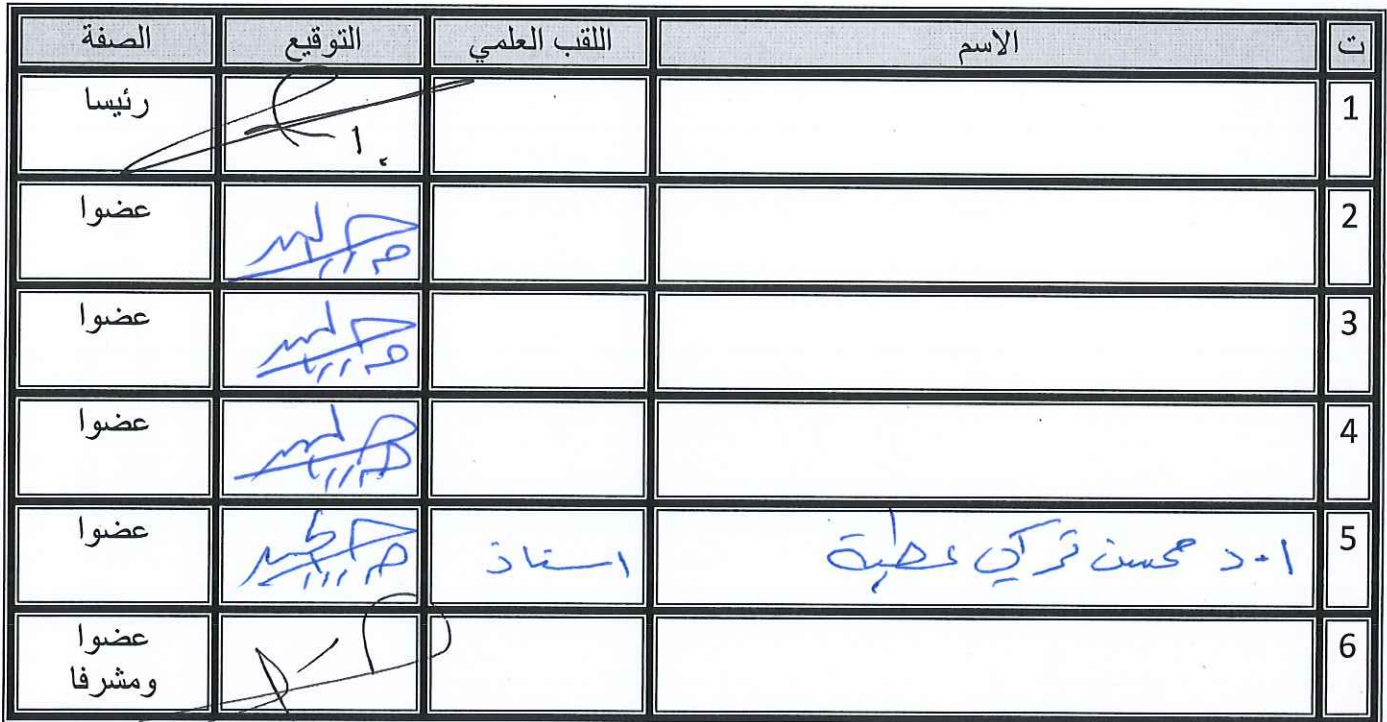 ت الاسم اللقب العلمي التوقيع الصفة
1 رئيسا
2 عضوا
3 عضوا
4 عضوا
5 ا.د محسن تركي عطية استاذ عضوا
6 عضوا
ومشرفا